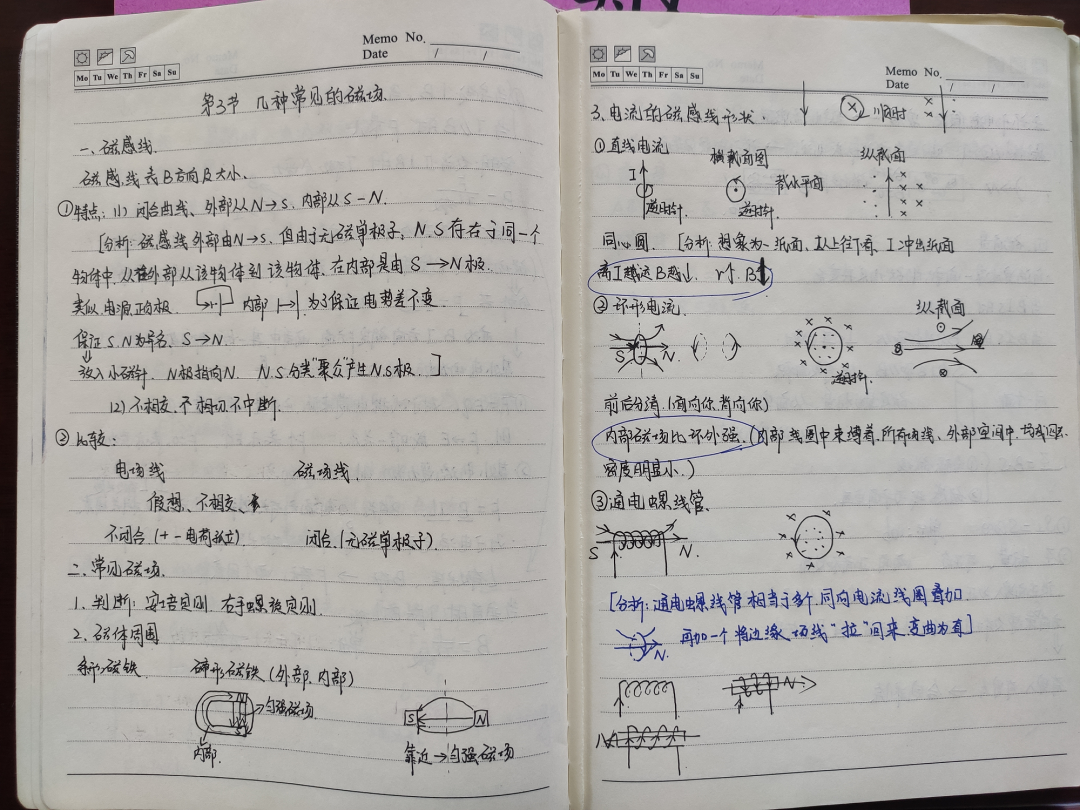 Memo No.
Date / /
Mo Tu We Th Fr Sa Su
第3节 几种常见的磁场.
一、磁感线.
磁感线表B方向及大小.
①特点: (1) 闭合曲线、外部从N→S. 内部从S-N.
[分析: 磁感线外部由N→S. 但由于无磁单极子, N.S存在于同一个
物体中, 从外部从该物体到该物体, 在内部是由S→N极.
类似电源正负极. 内部 为了保证电势差不变.
保证S.N为异名, S→N.
放入小磁针, N极指向N. N.S分类"聚合"产生N.S极. ]
(2) 不相交、不相切.不中断.
②比较:
电场线 磁场线.
假想、不相交、
不闭合 (+ - 电荷孤立) 闭合.(无磁单极子).
二、常见磁场.
1. 判断: 安培定则. 右手螺旋定则.
2. 磁体周围
条形磁铁 蹄形磁铁 (外部.内部)
匀强磁场.
内部.
S N
靠近→匀强磁场
Memo No.
Date / /
Mo Tu We Th Fr Sa Su
3、电流的磁感线形状. 顺时
①直线电流 横截面图 纵截面
I 截水平面
逆时针. 逆时针.
同心圆. [分析: 想象为一纸面, 从上往下看, I冲出纸面
离I越远B越↓. r↑. B↓
②环形电流. 纵截面
S N.
逆时针.
前后分清.(面向你.背向你)
内部磁场比环外强.(内部线圈中束缚着.所有场线、外部空间中.场线
密度明显小.)
③通电螺线管.
S N.
[分析: 通电螺线管相当于多个.同向电流线圈叠加
N. 再加一个将边缘场线"拉"回来.变曲为直]
N
N